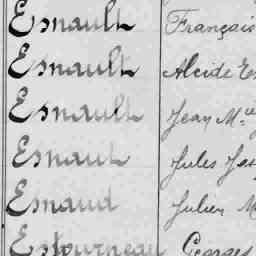 Esnault Français
Esnault Alcide Es
Esnault Jean M.
Esnaut Jules
Esnaud Julien M
Estourneau Georges